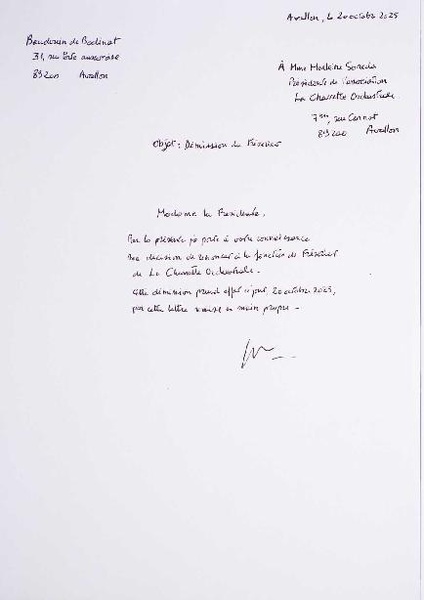 Avallon, le 20 octobre 2025
Baudouin de Bodinat
31, rue Porte auxerroise
89200 Avallon
À Mme Madeleine
Présidente de l'association
La Charrette Orchestrale
7 rue Carnot
89200 Avallon
Objet : Démission du Trésorier
Madame la Présidente,
Par la présente je porte à votre connaissance
ma décision de renoncer à la fonction de Trésorier
de La Charrette Orchestrale.
Cette démission prend effet ce jour, 20 octobre 2025,
par cette lettre remise en main propre.